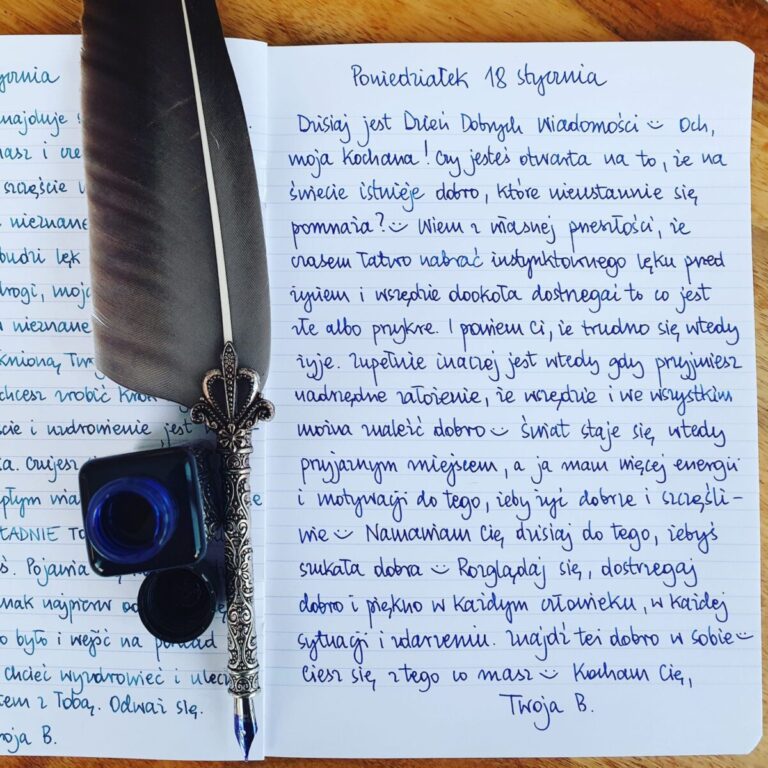 ycznia
najduje
masz i
szczęście
nieznane
budzi lęk
drogi, moja
nieznane
chcesz zrobić krok
ście i uzdrowienie jest
ka. Czujesz
płym
ŁADNIE
ś. Pojawia
nak najpierw
o było i wejść na ponad
chcieć wyzdrowieć i
tem z Tobą. Odważ się.
woja B.
Poniedziałek 18 stycznia
Dzisiaj jest Dzień Dobrych Wiadomości :) Och,
moja Kochana! Czy jesteś otwarta na to, że na
świecie istnieje dobro, które nieustannie się
pomnaża? :) Wiem z własnej przeszłości, że
czasem łatwo nabrać instynktownego lęku przed
życiem i wszędzie dookoła dostrzegać to co jest
złe albo przykre. I powiem Ci, że trudno się wtedy
żyje. Zupełnie inaczej jest wtedy gdy przyjmiesz
nadrzędne założenie, że wszędzie i we wszystkim
można znaleźć dobro :) Świat staje się wtedy
przyjaznym miejscem, a ja mam więcej energii
i motywacji do tego, żeby żyć dobrze i szczęśli-
wie :) Namawiam Cię dzisiaj do tego, żebyś
szukała dobra :) Rozglądaj się, dostrzegaj
dobro i piękno w każdym człowieku, w każdej
sytuacji i zdarzeniu. Znajdź też dobro w sobie :)
Ciesz się z tego co masz :) Kocham Cię,
Twoja B.